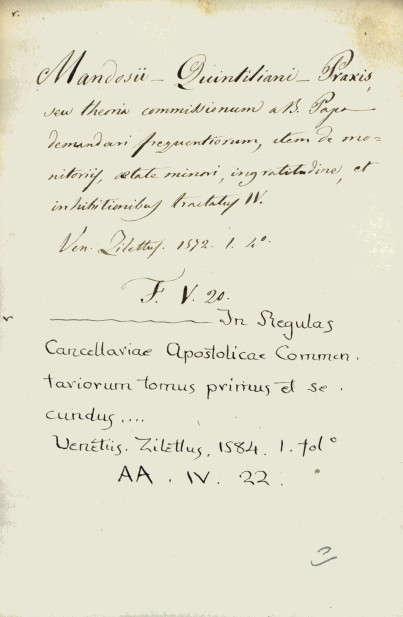 r.
Mandosii - Quintiliani - Praxis,
seu theoria commissionum a B. Papa
demandari frequentiorum, item de mo=
nitoriis, ætate minori, ingratitudine, et
inhibitionibus tractatus IV.
Ven. Zilettus. 1572. 1. 4º.
F. V. 20.
In Regulas
Cancellariae Apostolicae Commen.
tariorum tomus primus et se.
cundus....
Venetiis. Zilettus, 1584. 1. folº
AA. IV. 22.